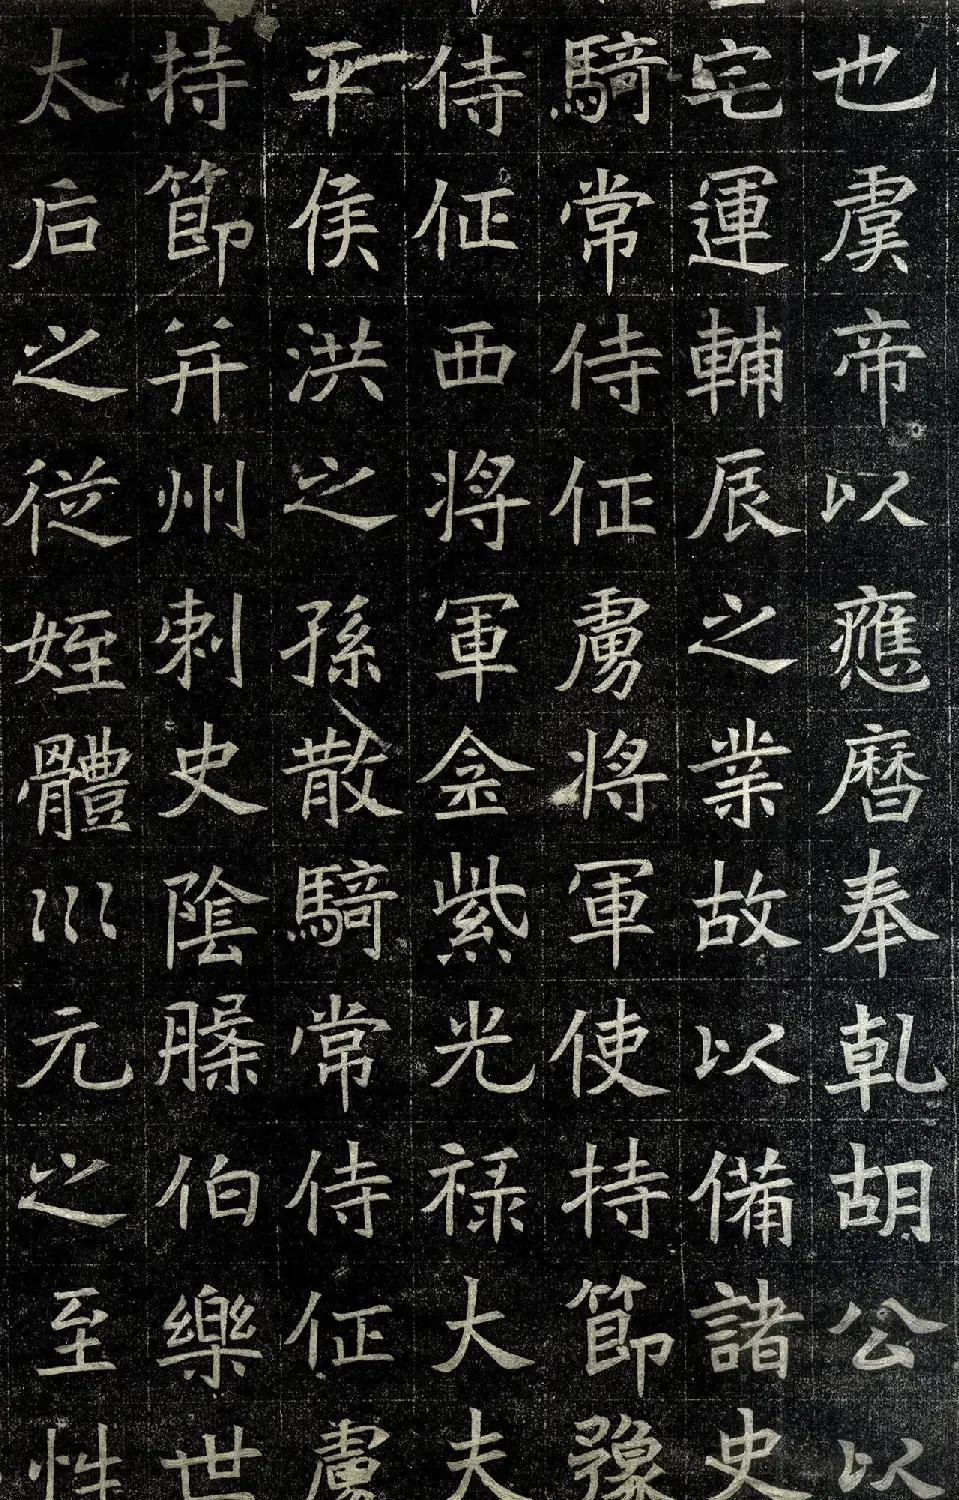 也虞帝以應曆奉乹胡公以
宅運輔辰之業故以備諸史
騎常侍征虜將軍使持節豫
侍征西將軍金紫光祿大夫
平侯洪之孫散騎常侍征虜
持節并州刺史陰槃伯樂世
太后之從姪體巛元之至性